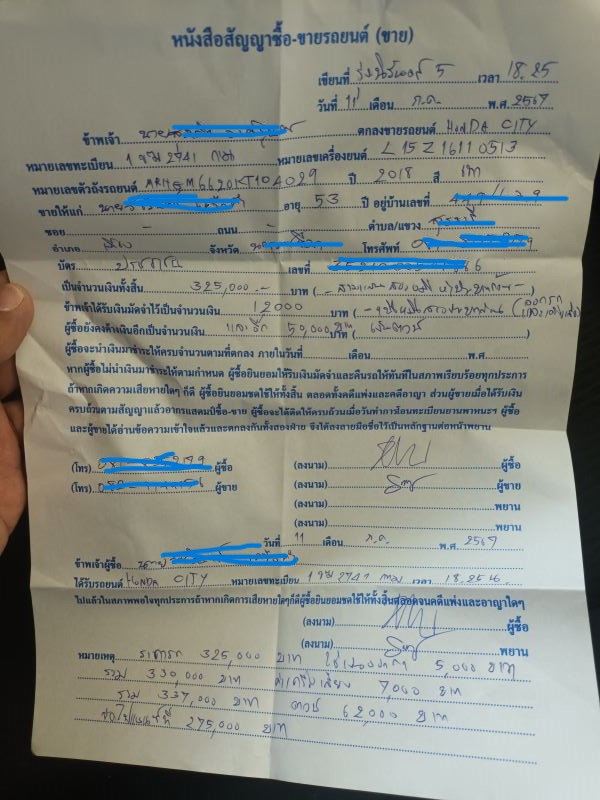 หนังสือสัญญาซื้อ-ขายรถยนต์ (ขาย)
เขียนที่ 5 เวลา 18.25
วันที่ 11 เดือน ก.ค. พ.ศ. 2567
ข้าพเจ้า นาย ตกลงขายรถยนต์ HONDA CITY
หมายเลขทะเบียน 2741 กทม หมายเลขเครื่องยนต์ L15Z16110513
หมายเลขตัวถังรถยนต์ ปี 2018 สี เทา
ขายให้แก่ นาย อายุ 53 ปี อยู่บ้านเลขที่
ซอย - ถนน - ตำบล/แขวง
อำเภอ เมือง จังหวัด โทรศัพท์
บัตร ประชาชน เลขที่
เป็นจำนวนเงินทั้งสิ้น 325,000.- บาท (- สามแสนสองหมื่นห้าพันบาทถ้วน -)
ข้าพเจ้าได้รับเงินมัดจำไว้เป็นจำนวนเงิน 12000 บาท (- หนึ่งหมื่นสองพันบาท
ผู้ซื้อยังคงค้างเงินอีกเป็นจำนวนเงิน และอีก 50,000 บาท ( เป็นดาวน์ )
ผู้ซื้อจะนำเงินมาชำระให้ครบจำนวนตามที่ตกลง ภายในวันที่ เดือน พ.ศ.
หากผู้ซื้อไม่นำเงินมาชำระตามกำหนด ผู้ซื้อยินยอมให้ริบเงินมัดจำและคืนรถให้ทันทีในสภาพเรียบร้อยทุกประการ
ถ้าหากเกิดความเสียหายใดๆ ก็ดี ผู้ซื้อยินยอมชดใช้ให้ทั้งสิ้น ตลอดทั้งคดีแพ่งและคดีอาญา ส่วนผู้ขายเมื่อได้รับเงิน
ครบถ้วนตามสัญญาแล้วอากรแสตมป์ซื้อ-ขาย ผู้ซื้อจะได้คิดให้ครบถ้วนเมื่อวันทำการโอนทะเบียนยานพาหนะฯ ผู้ซื้อ
และผู้ขายได้อ่านข้อความเข้าใจแล้วและตกลงกันทั้งสองฝ่าย จึงได้ลงลายมือชื่อไว้เป็นหลักฐานต่อหน้าพยาน
(โทร) ผู้ซื้อ (ลงนาม) ผู้ซื้อ
(โทร) ผู้ขาย (ลงนาม) ผู้ขาย
(ลงนาม) พยาน
(ลงนาม) พยาน
วันที่ 11 เดือน ก.ค. พ.ศ. 2567
ข้าพเจ้าผู้ซื้อ นาย
ได้รับรถยนต์ HONDA CITY หมายเลขทะเบียน 2741 กทม เวลา 18.25 น.
ไปแล้วในสภาพพอใจทุกประการถ้าหากเกิดการเสียหายใดๆก็ดีผู้ซื้อยินยอมชดใช้ให้ทั้งสิ้นตลอดจนคดีแพ่งและอาญาใดๆ
(ลงนาม) ผู้ซื้อ
(ลงนาม) พยาน
หมายเหตุ ราคารถ 325,000 บาท 5,000 บาท
รวม 330,000 บาท 7,000 บาท
รวม 337,000 บาท ดาวน์ 62,000 บาท
275,000 บาท